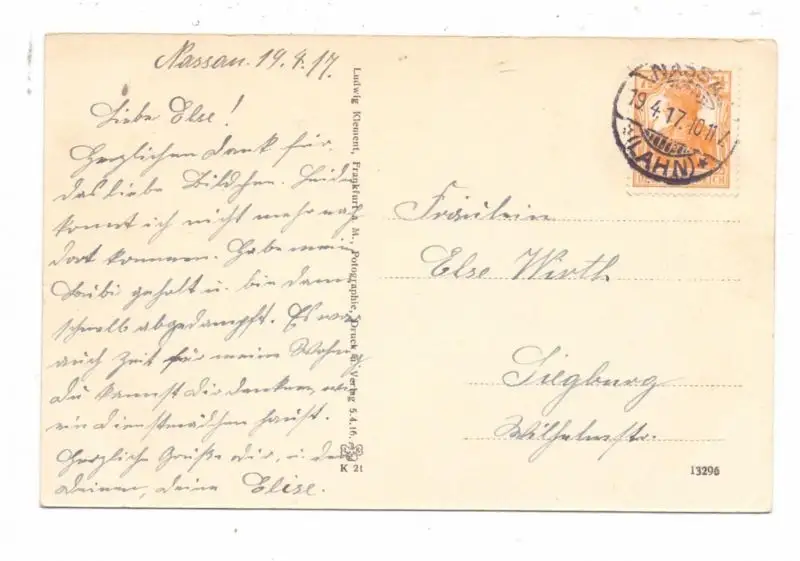 Nassau. 19.4.17.
Liebe Else!
Herzlichen Dank für
das liebe Bildchen. Leider
konnt ich nicht mehr nach
dort kommen. Habe mein
Bubi geholt u. bin dann
schnell abgedampft. Es war
auch Zeit für meine Wohng
Du kannst dir denken, wie
ein Dienstmädchen haust.
Herzliche Grüße dir, u. den
deinen, deine Elise.
Ludwig Klement, Frankfurt a. M., Potographie, Druck u. Verlag 5.4.16.
K 21
NASSAU
19.4.17.10-11V.
(LAHN)
Fräulein
Else Wirth
Siegburg
Wilhelmstr.
13296